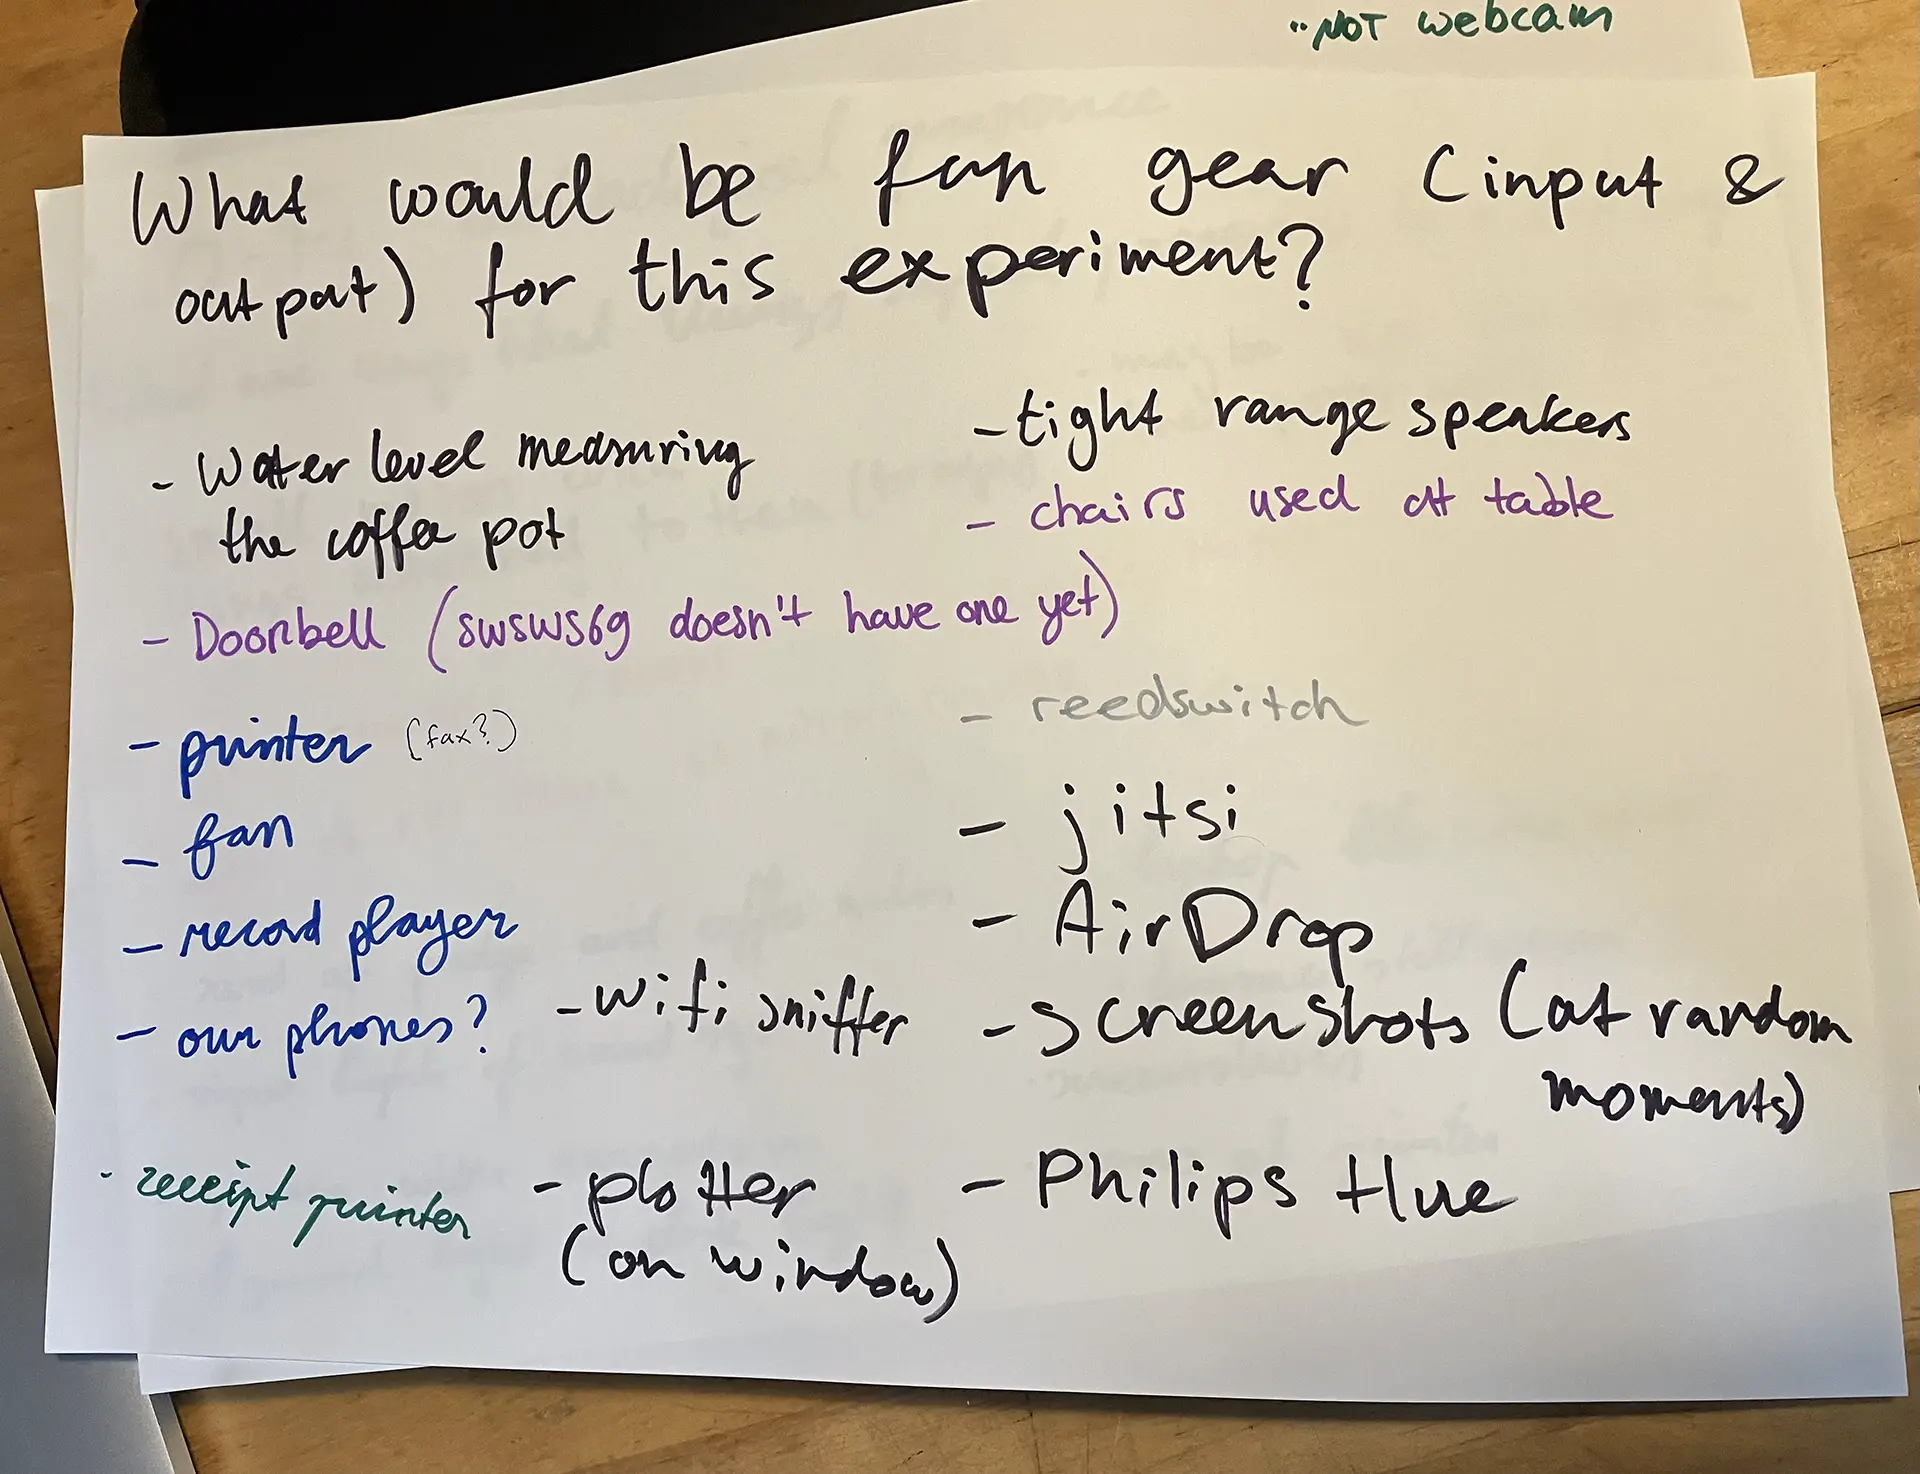 "NOT webcam
What would be fun gear (input &
output) for this experiment?
- Water level measuring
the coffee pot
- Doorbell (swsws69 doesn't have one yet)
- printer (fax?)
- fan
- record player
- our phones?
- receipt printer
- wifi sniffer
- plotter
(on window)
- tight range speakers
- chairs used at table
- reedswitch
- jitsi
- AirDrop
- screenshots (at random
moments)
- Philips Hue